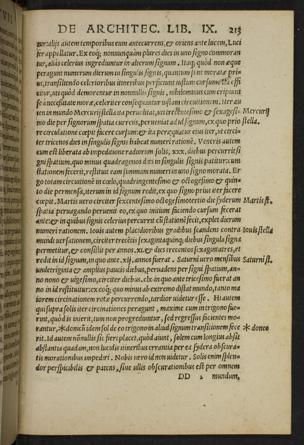 DE ARCHITEC. LIB. IX. 213
poralis autem temporibus eum antecurrens, & oriens ante lucem, Luci
fer appellatur. Ex eoq; nonnunquam plures dies in uno signo commoran
tur, alias celerius ingrediuntur in alterum signum. Itaq; quòd non æque
peragunt numerum dierum in singulis signis, quantum sunt moratæ priùs,
transiliendo celerioribus itineribus perficiunt iustum cursum
uti quòd demorentur in nonnullis signis, nihilominus cum eripiant
se à necessitate moræ, celeriter consequantur iustam circuitionem. Iter au
tem in mundo Mercurij stella ita peruolitat, uti trecentesimo & sexagesi- Mercurij
mo die per signorum spatia currens, perueniat ad id signum, ex quo pri- stella.
re circulatione cœpit facere cursum: & ita peræquatur eius iter, ut circi-
ter tricenos dies in singulis signis habeat numeri rationem. Veneris autem
cum est liberata ab impeditione radiorum solis, xxx. diebus percurrit si
gni spatium, quo minus quadragenos dies in singulis signis patitur: cum
stationem fecerit, restituit eam summam numeri in uno signo morata. Er
go totam circuitionem in cœlo, quadringentesimo & octogesimo & quin-
to die permensa, iterum in id signum redit, ex quo signo prius iter facere
cœpit. Martis uero circiter sexcentesimo octogesimotertio die syderum Martis stella
spatia peruagando peruenit eo, ex quo initium faciendo cursum fecerat
ante: & in quibus signis celerius percurrit, cùm stationem fecit, explet dierum
numeri rationem. Iouis autem placidioribus gradibus scandens contra Iouis stella
mundi uersationem, circiter trecentis sexagintaquinq; diebus singula signa
permetitur, & consistit per annos. xi. & dies trecentos sexagintatres, et
redit in id signum, in quo ante. xij. annis fuerat. Saturni uero mensibus Saturni st.
undetriginta & amplius paucis diebus, peruadens per signi spatium, an
no nono & uigesimo, circiter diebus. clx. in quo ante tricesimo fuerat an
no in id restituitur: ex eoq; quo minus ab extremo distat mundo, tanto ma
iorem circinationem rotæ percurrendo, tardior uidetur esse. Hi autem
qui supra solis iter circinationes peragunt, maxime cum in trigono fue-
runt, quod is inierit, tum non progrediuntur, sed regressus facientes mo-
rantur, * donicũ idem sol de eo trigono in aliud signum transitionem fece * donec
rit. Id autem nõnullis sic fieri placet, quòd aiunt, solem cum longius absit
abstantia quadam, non lucidis itineribus errantia per ea sydera obscura-
tis morationibus impediri. Nobis uero id non uidetur. Solis enim splen-
dor perspicibilis & patens, sine ullis obscurationibus est per omnem
DD 2 mundum,